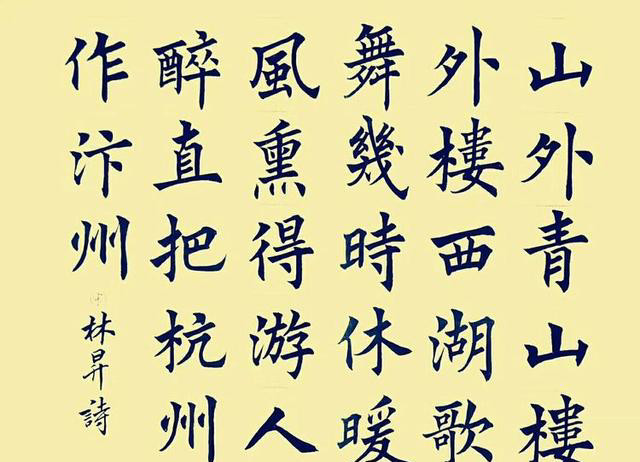 山外青山樓
外樓西湖歌
舞幾時休暖
風熏得游人
醉直把杭州
作汴州
林昇詩